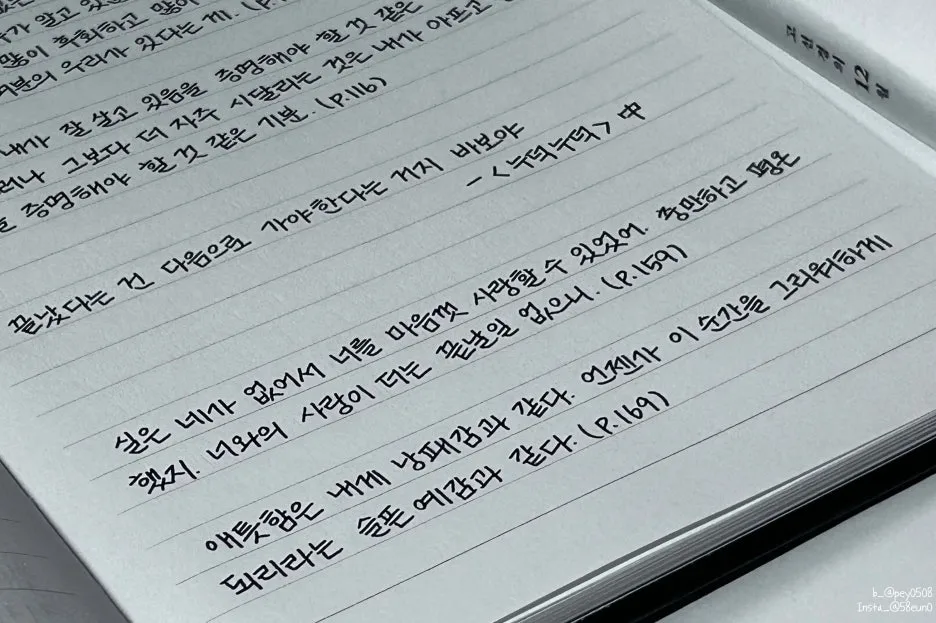 알고
많이 후회하고 많이
우리가 있다는 게. (p.1
내가 잘 살고 있음을 증명해야 할 것 같은
그보다 더 자주 시달리는 것은 내가 아프고
증명해야 할 것 같은 기분. (p.116)
끝났다는 건 다음으로 가야한다는 거지 바보야
- <누덕누덕> 中
실은 네가 없어서 너를 마음껏 사랑할 수 있었어. 충만하고 평온
했지. 너와의 사랑이 더는 끝날일 없으니. (p.159)
애틋함은 내게 낭패감과 같다. 언젠가 이 순간을 그리워하게
되리라는 슬픈 예감과 같다. (p.169)
고선경의 12월
b_@pey0508
Insta_@58eun0